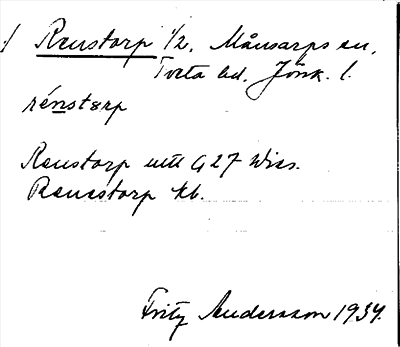 / Renstorp 1/2. Månsarps sn,
Tveta hd. Jönk. l.
rénstorp
Renstorp utt G 27 Wiss.
Renestorp kb.
Fritz Andersson 1934.